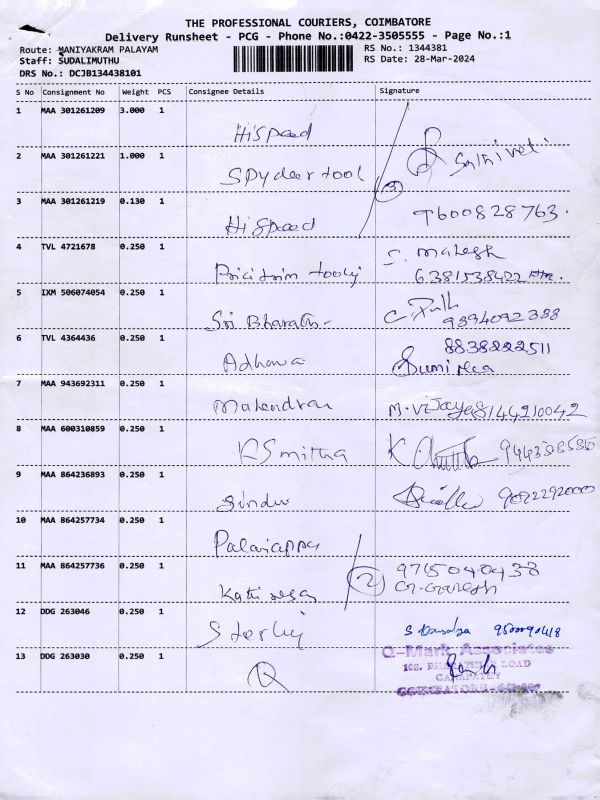 THE PROFESSIONAL COURIERS, COIMBATORE
Delivery Runsheet - PCG - Phone No.:0422-3505555 - Page No.:1
Route: MANIYAKRAM PALAYAM RS No.: 1344381
Staff: SUDALIMUTHU RS Date: 28-Mar-2024
DRS No.: DCJB134438101
S No Consignment No Weight PCS Consignee Details Signature
1 MAA 301261209 3.000 1
Hispeed
2 MAA 301261221 1.000 1
Spydeer tool 3
3 MAA 301261219 0.130 1
Hispeed 9600828763.
4 TVL 4721678 0.250 1 S. Mahesh
5 IXM 506074054 0.250 1
Sri Bharath 9894092388
6 TVL 4364436 0.250 1 8838222511
Adhava
7 MAA 943692311 0.250 1
Mahendran M. Vijaya 8144210042
8 MAA 600310859 0.250 1
K Smitha K
9 MAA 864236893 0.250 1
Sindu
10 MAA 864257734 0.250 1
Palaniappa
11 MAA 864257736 0.250 1 9715040438
2 G. Ganesh
12 DDG 263046 0.250 1
13 DDG 263030 0.250 1 Q-Mark Associates
Q 108, ROAD
COIMBATORE